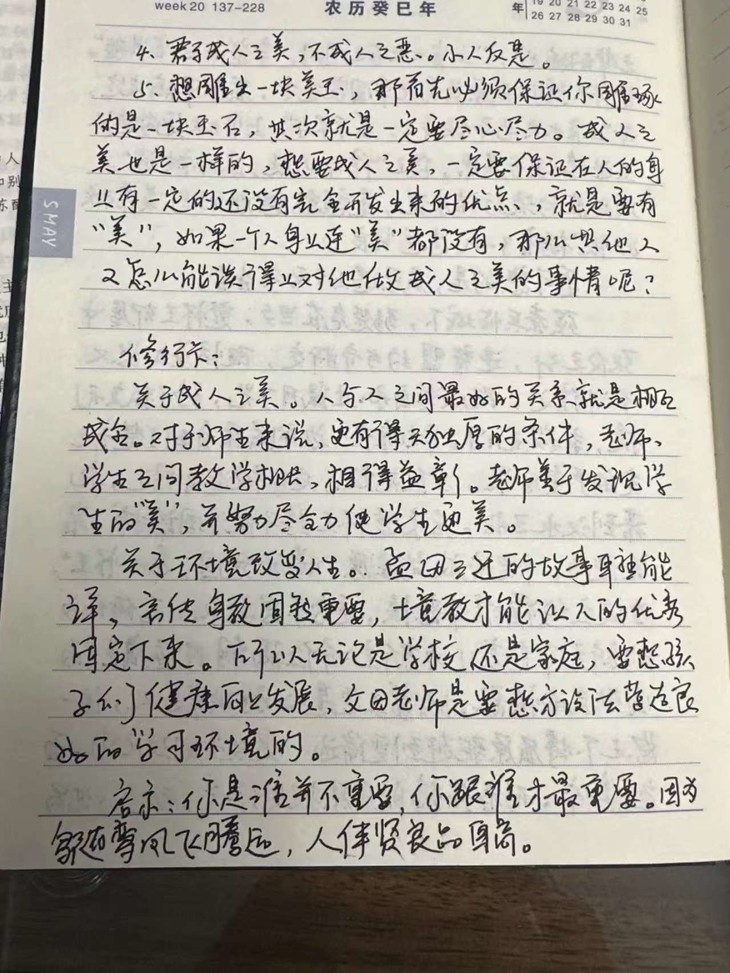 week 20 137-228
农历癸巳年
年 19 20 21 22 23 24 25
26 27 28 29 30 31
5 MAY
4. 君子成人之美,不成人之恶。小人反是。
5. 想雕出一块美玉,那首先必须保证你雕琢
的是一块玉石,其次就是一定要尽心尽力。成人之
美也是一样的,想要成人之美,一定要保证在人的身
上有一定的还没有完全开发出来的优点,就是要有
“美”,如果一个人身上连“美”都没有,那么其他人
又怎么能谈得上对他做成人之美的事情呢?
修行卡:
关于成人之美。人与人之间最好的关系就是相互
成全。对于师生来说,更有得天独厚的条件,老师、
学生之间教学相长,相得益彰。老师善于发现学
生的“美”,并努力尽全力使学生更美。
关于环境改变人生。孟母三迁的故事耳熟能
详,言传身教固然重要,境教才能让人的优秀
固定下来。所以人无论是学校还是家庭,要想孩
子们健康向上发展,父母老师是要想方设法营造良
好的学习环境的。
启示:你是谁并不重要,你跟谁才最重要。因为
鸟随鸾凤飞腾远,人伴贤良品自高。